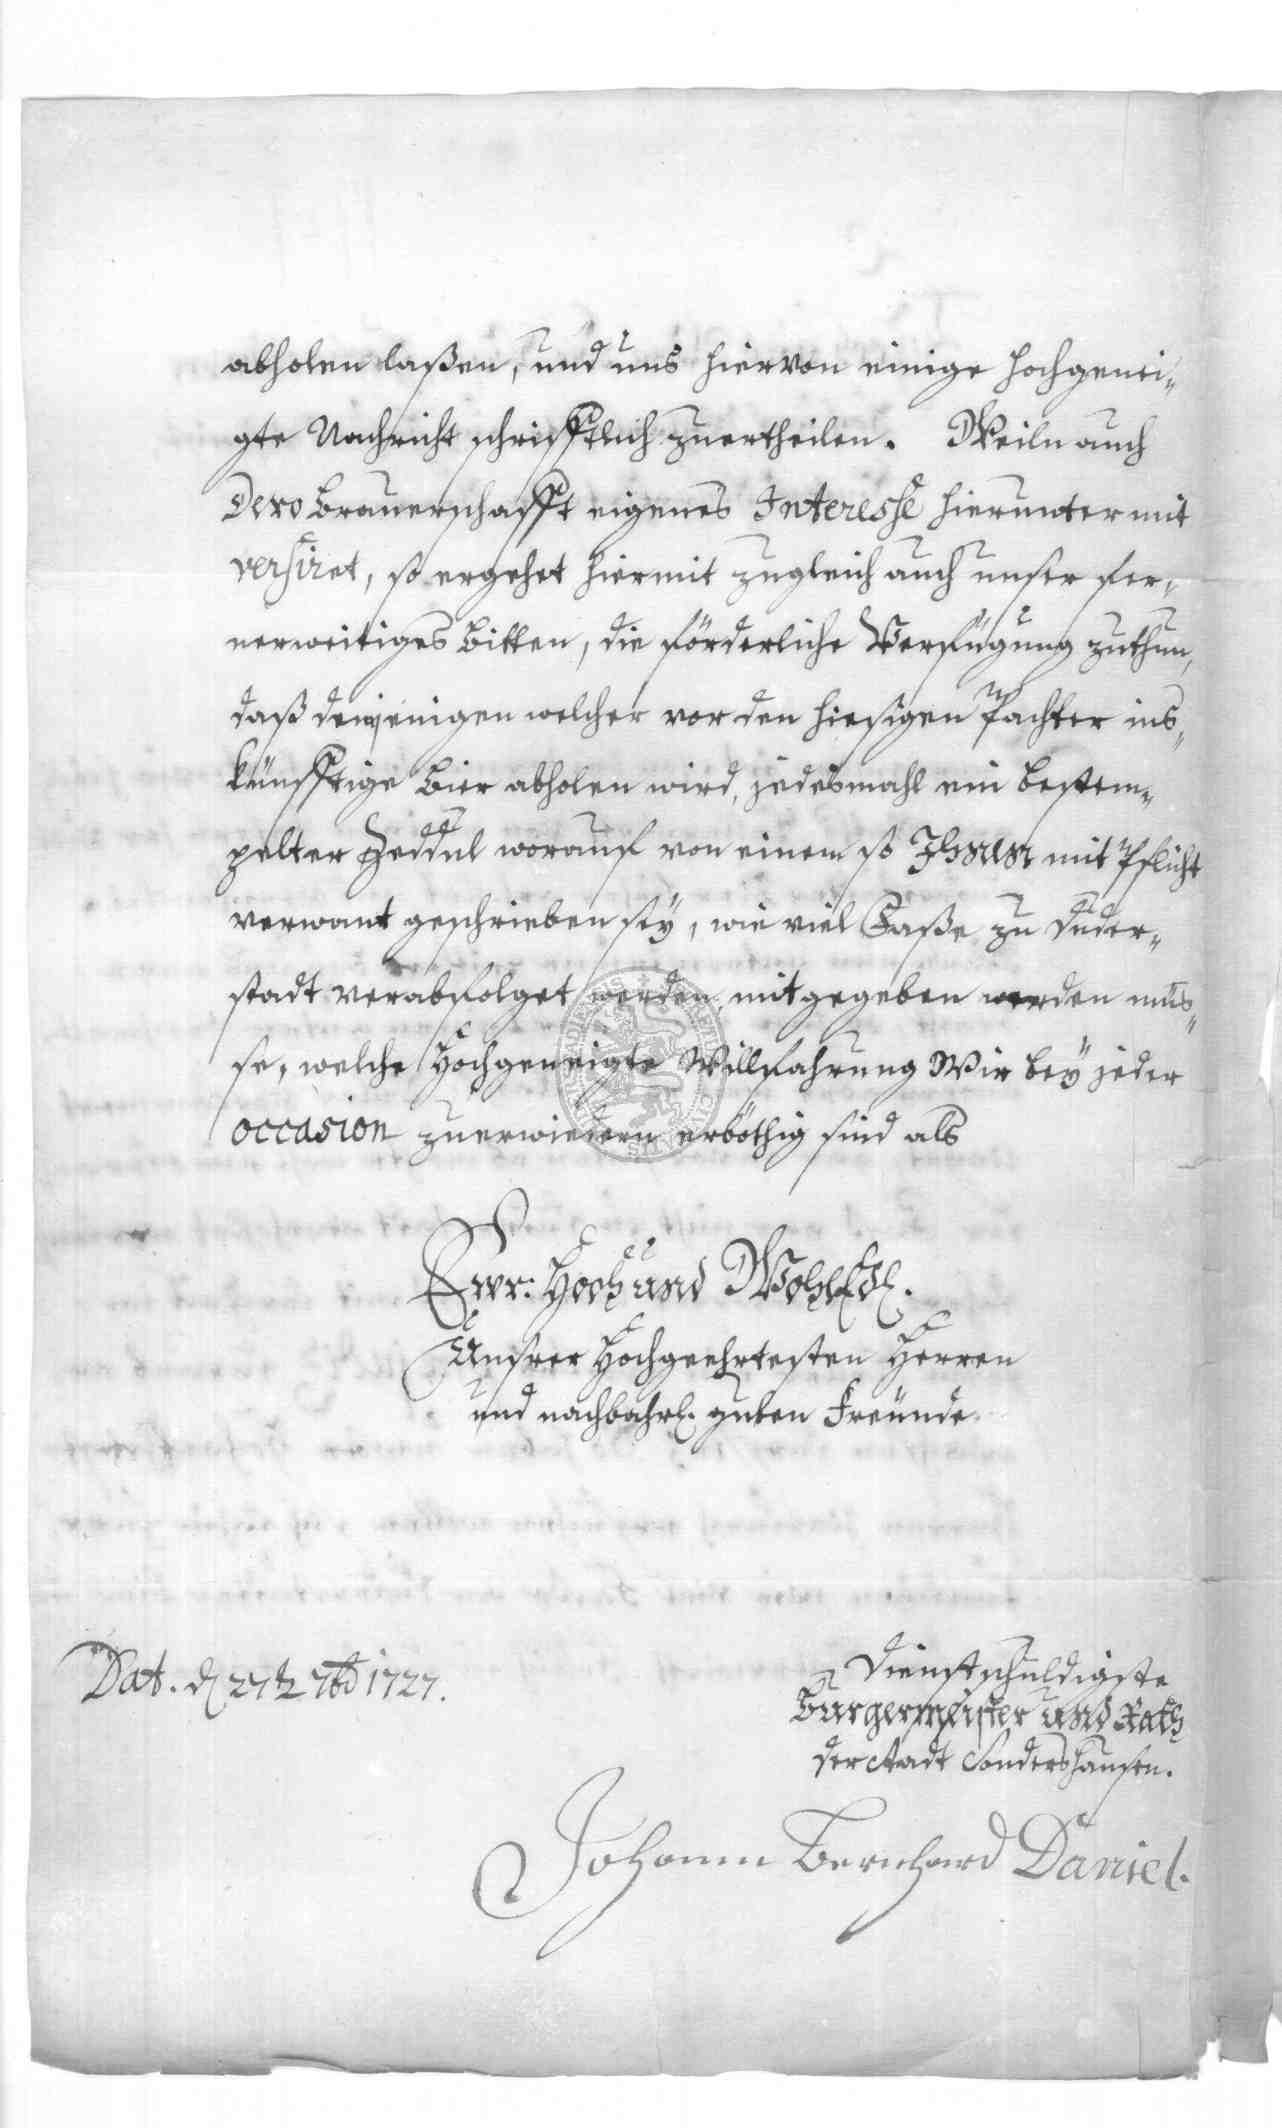 abholen laßen, und uns hiervon einige hochgenei-
gte Nachricht schrifftlich zuertheilen. Weiln auch
Dero Brauerschafft eigenes Interesse hierunter mit
versiret, so ergehet hiermit zugleich auch unser fer-
nerweitiges Bitten, die förderliche Verfügung zuthun,
daß demjenigen welcher vor den hiesigen Pachter ins-
künfftige Bier abholen wird, jedesmahl ein bestem-
pelter Zeddul worauf von einem so Ihnen mit Pflicht
verwant geschrieben sey, wie viel Faße zu Duder-
stadt verabfolget werden, mitgegeben werden müs-
se, welche Hochgeneigte Willfahrung Wir bey jeder
occasion zuerwiedern erböthig sind als
Ewr: Hoch und WohlEdl.
Unsrer Hochgeehrtesten Herren
und nachbahrl. guten Freünde
Dat. d 27t 7br 1727.
Dienstschuldigste
Burgermeister und Rath
der Stadt Sondershausen.
Johann Bernhard Daniel.